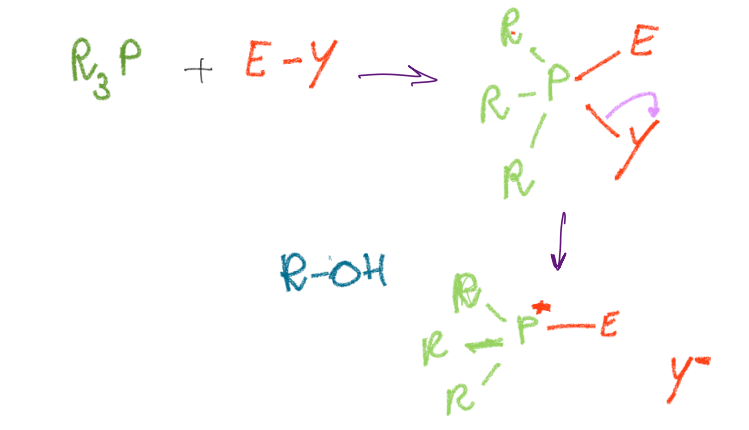 R₃P + E-Y → R E
R-P
R Y
R-OH
R P⁺-E
R
R Y⁻